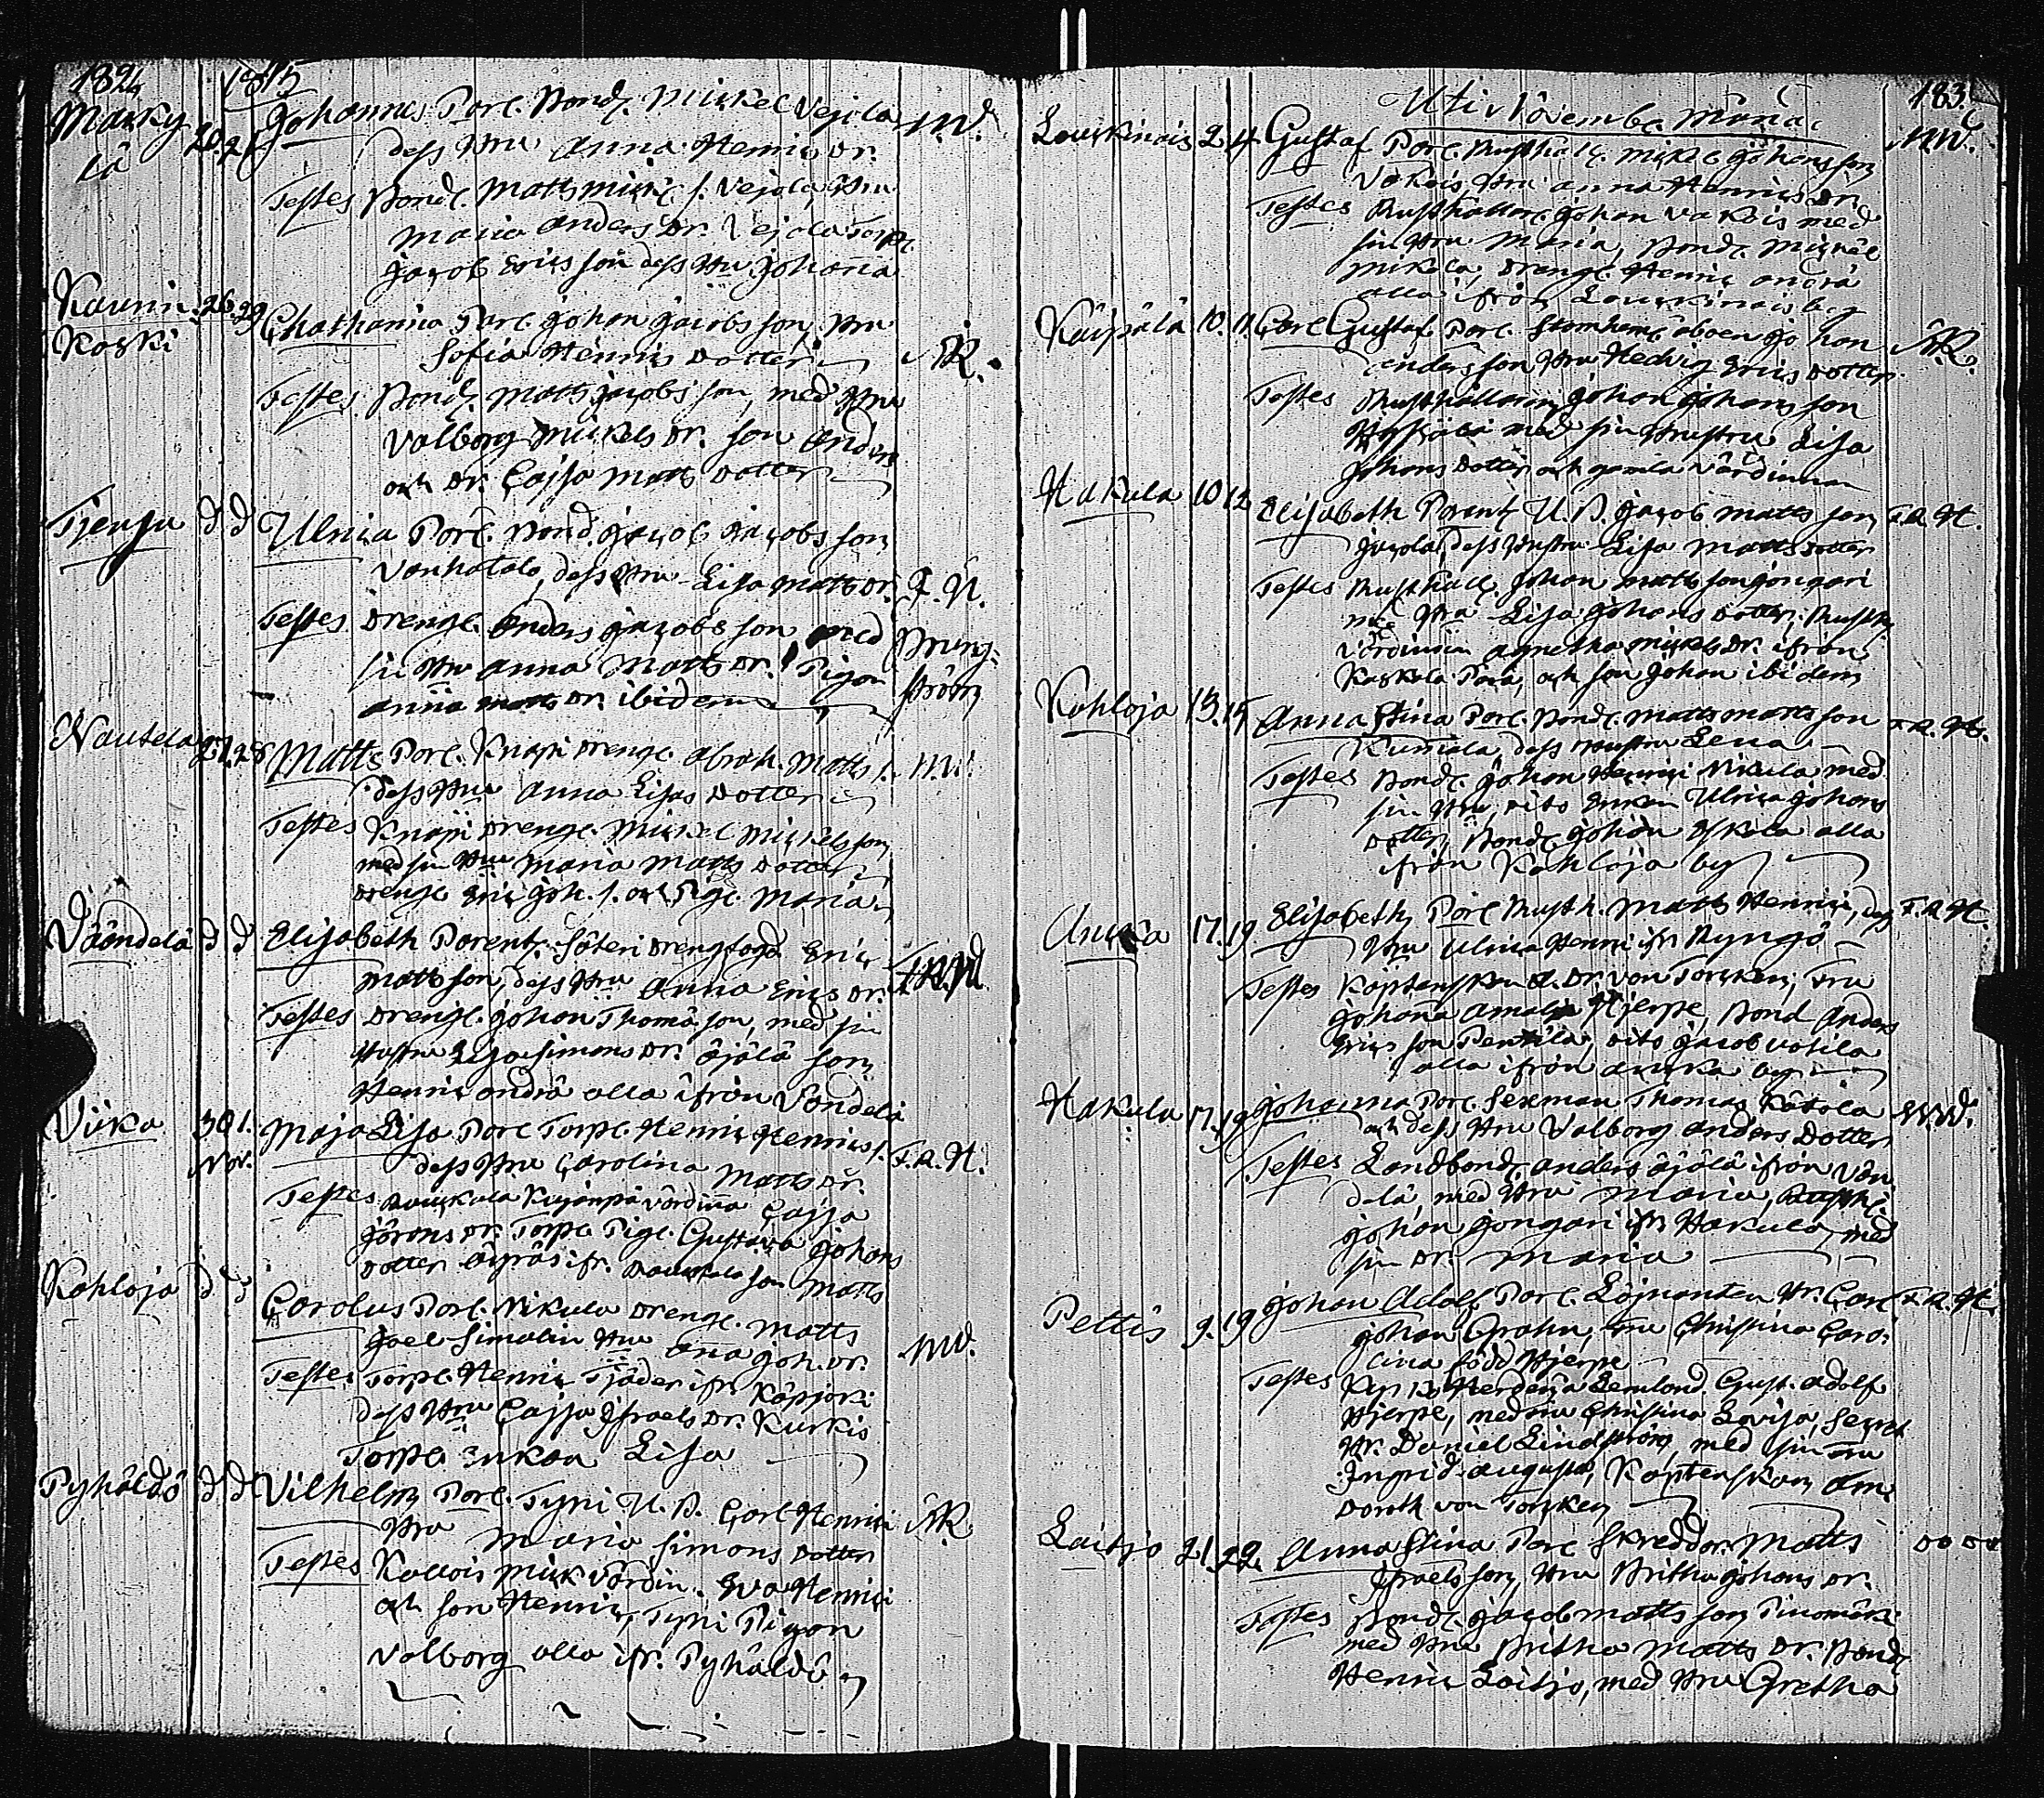 182, 1815
Masky 20 21 Johannes Par. Bond. Mickel Vejola M.W.
lä dess Hru Anna Henrics Dr.
Testes Bond. Matts Mick. s. Vejola, Hru
Maria Anders Dr. Vejola Torp.
Jacob Erics son dess Hu Johanna
Kaunis 26. 29 Chatharina Par. Johan Jacobs son, Hru
Koski Sofia Henrics Dotter N.R.
Testes Bond. Matts Jacobs son, med Hru
Valborg Mickels Dr. son Anders
och Dr. Cajsa Matts Dotter
Tjensu d d Ulrica Par. Bond. Jacob Jacobs son
Vanhatalo, dess Hru Lisa Matts Dr. J. N.
Testes Drengl. Anders Jacobs son med Brung-
sin Hru Anna Matts Dr. Pigan ström
Anna Matts Dr. ibidem
Nautela 27. 28 Matts Par. Knapi Drengl. Abrah. Matts s. M.
dess Hru Anna Lisas Dotter
Testes Knapi Drengl. Mickel Mickels son
med sin Hru Maria Matts Dotter
Drengl Eric Joh. s. och Pigl. Maria
Väändelä d d Elisabeth Parent. Säteri Drengfogd Eric
Matts son, dess Hru Anna Erics Dr.
Testes Drengl. Johan Thomæ son, med sin
Hustru Lisa Simons Dr. Äjälä son
Henric Andra alla ifrån Vändelä
Viika 30 1. Maja Lisa Par. Torp. Henric Henrics s. F.A.H.
Nov. dess Hru Carolina Matts Dr.
Testes Vårdinna Cajsa
Jörans Dr. Torp. Pigl. Gustava Johans
Dotter Äyräs ifr. son Matts
Kahloja d d Carolus Par. Nikula Drengl. Matts
Joel Simalin Hru Anna Joh. Dr. M.W.
Testes Torp. Henric Tjäder ifr. Käpjoki
dess Hru Cajsa Israels Dr. Kurkis
Torp. Enkan Lisa
Pyhäldö d d Vilhelm Par. Tyni U. B. Carl Henrici N.R.
Hru Maria Simons Dotter
Testes Kallois Mick Värdin. Eva Henrici
och son Henric, Tyni Pigan
Valborg alla ifr. Pyhäldö
183.
Uti Novembr. Måna
Lauckinais 2 4 Gustaf Par. Rusthåll. Mick. Johans son M.W.
Vakois, Hru Anna Henrics Dr.
Testes Rusthållar. Johan Vakois med
sin Hru Maria, Bond. Mickel
Mikola, Drengl. Henric Andra
alla ifrån Lauckinais by
Käipälä 10. 11. Carl Gustaf Par. Stamhem. åboen Johan N.R.
Anders son Hru Hedvig Erics Dotter
Testes Rusthållaren Johan Johans son
med sin Hustru Lisa
Johans Dotter och gamla Värdinnan
Hakula 10 12 Elisabeth Parent. U. B. Jacob Matts son F.A.H.
Jacola, dess Hustru Lisa Matts Dotter
Testes Rusthåll. Johan Matts son Jongari
med Hru Lisa Johans Dotter, Rusth.
Värdinnan Agnetha Mickels Dr. ifrån
Kaskala Para, och son Johan ibidem
Kahloja 13. 15 Anna Stina Par. Bond. Matts Matts son F.A.H.
Kumiala, dess Hustru Lena
Testes Bond. Johan Henrici Nikula med
sin Hru, dito Enkan Ulrica Johans
Dotter, Bond. Johan Iskala alla
ifrån Kahloja by
Auska 17. 19 Elisabeth Par. Rusth. Matts Henrici, dess F.A.H.
Hru Ulrica Henri ifr. Ryngö
Testes Kaptenskan A. Dr. von Torcken, Fru
Johanna Amalia Hjerpe, Bond. Anders
Erics son Penttila, dito Jacob Vatila
alla ifrån Auska by
Hakula 17. 19 Johanna Par. Sexman Thomas Kätölä M.W.
och dess Hru Valborg Anders Dotter
Testes Landbond. Anders Äjälä ifrån Vän-
delä, med Hru Maria, Rusth.
Johan Jongari ifr. Hakula, med
sin Dr. Maria
Pettis 9. 19 Johan Adolf Par. Löjnanten Hr. Carl F.A.H.
Johan Grahn, Fru Christina Caro-
lina född Hjerpe
Testes Lemlund. Gust. Adolf
Hjerpe, med Fru Christina Lovisa, Secret.
Hr. Daniel Lindström, med sin Fru
Ingrid Augusta, Kaptenskan Ann
Doroth von Torcken
Laitjo 21. 22. Anna Stina Par. Skreddar. Matts
Israels son, Hru Britha Johans Dr.
Testes Bond. Jacob Matts son Pinomäki
med Hru Britha Matts Dr. Bond.
Henric Laitjo, med Hru Gretha